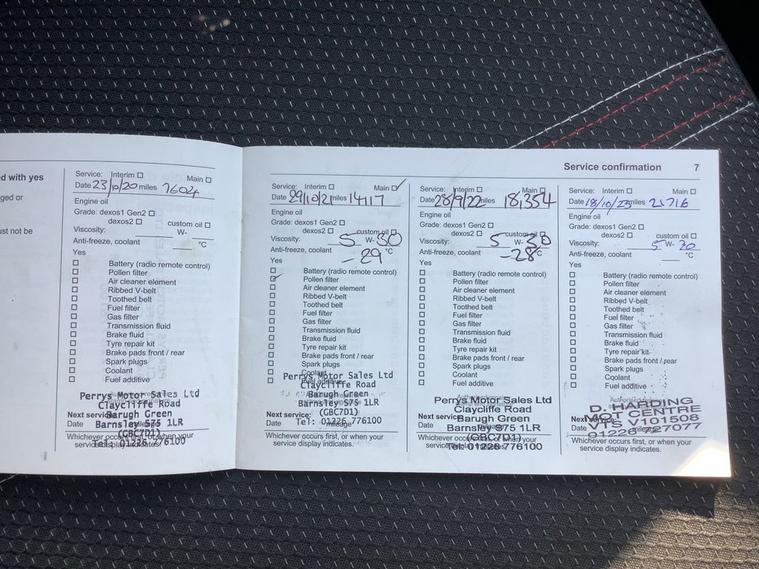 d with yes
ged or
ust not be
Service: Interim ☐ Main ☐
Date 23/10/20 miles 7602
Engine oil
Grade: dexos1 Gen2 ☐
dexos2 ☐ custom oil ☐
Viscosity: W-
Anti-freeze, coolant °C
Yes
☐ Battery (radio remote control)
☐ Pollen filter
☐ Air cleaner element
☐ Ribbed V-belt
☐ Toothed belt
☐ Fuel filter
☐ Gas filter
☐ Transmission fluid
☐ Brake fluid
☐ Tyre repair kit
☐ Brake pads front / rear
☐ Spark plugs
☐ Coolant
☐ Fuel additive
Perrys Motor Sales Ltd
Claycliffe Road
Next service: Barugh Green
Date Barnsley S75 1LR
(GBC7D1)
Whichever occurs first, or when your
service display indicates.
Tel: 01226 776100
Service confirmation 7
Service: Interim ☐ Main ☑
Date 29/10/21 miles 14117
Engine oil
Grade: dexos1 Gen2 ☐
dexos2 ☐ custom oil ☐
Viscosity: 5 W- 30
Anti-freeze, coolant -29 °C
Yes
☐ Battery (radio remote control)
☑ Pollen filter
☐ Air cleaner element
☐ Ribbed V-belt
☐ Toothed belt
☐ Fuel filter
☐ Gas filter
☐ Transmission fluid
☐ Brake fluid
☐ Tyre repair kit
☐ Brake pads front / rear
☐ Spark plugs
☐ Coolant
☐ Fuel additive
Perrys Motor Sales Ltd
Claycliffe Road
Barugh Green
Barnsley S75 1LR
Next service: (GBC7D1)
Date Tel: 01226 776100
mileage
Whichever occurs first, or when your
service display indicates.
Service: Interim ☐ Main ☐
Date 28/9/22 miles 18,354
Engine oil
Grade: dexos1 Gen2 ☐
dexos2 ☐ custom oil ☐
Viscosity: 5 W- 30
Anti-freeze, coolant -28 °C
Yes
☐ Battery (radio remote control)
☐ Pollen filter
☐ Air cleaner element
☐ Ribbed V-belt
☐ Toothed belt
☐ Fuel filter
☐ Gas filter
☐ Transmission fluid
☐ Brake fluid
☐ Tyre repair kit
☐ Brake pads front / rear
☐ Spark plugs
☐ Coolant
☐ Fuel additive
Perrys Motor Sales Ltd
Claycliffe Road
Next service: Barugh Green
Date Barnsley S75 1LR
(GBC7D1)
Whichever occurs first, or when your
service display indicates.
Tel: 01226 776100
Service: Interim ☐ Main ☐
Date 18/10/23 miles 21716
Engine oil
Grade: dexos1 Gen2 ☐
dexos2 ☐ custom oil ☐
Viscosity: 5 W- 30
Anti-freeze, coolant °C
Yes
☐ Battery (radio remote control)
☐ Pollen filter
☐ Air cleaner element
☐ Ribbed V-belt
☐ Toothed belt
☐ Fuel filter
☐ Gas filter
☐ Transmission fluid
☐ Brake fluid
☐ Tyre repair kit
☐ Brake pads front / rear
☐ Spark plugs
☐ Coolant
☐ Fuel additive
D. HARDING
MOT CENTRE
VTS V101508
Date 01226 727077
Whichever occurs first, or when your
service display indicates.